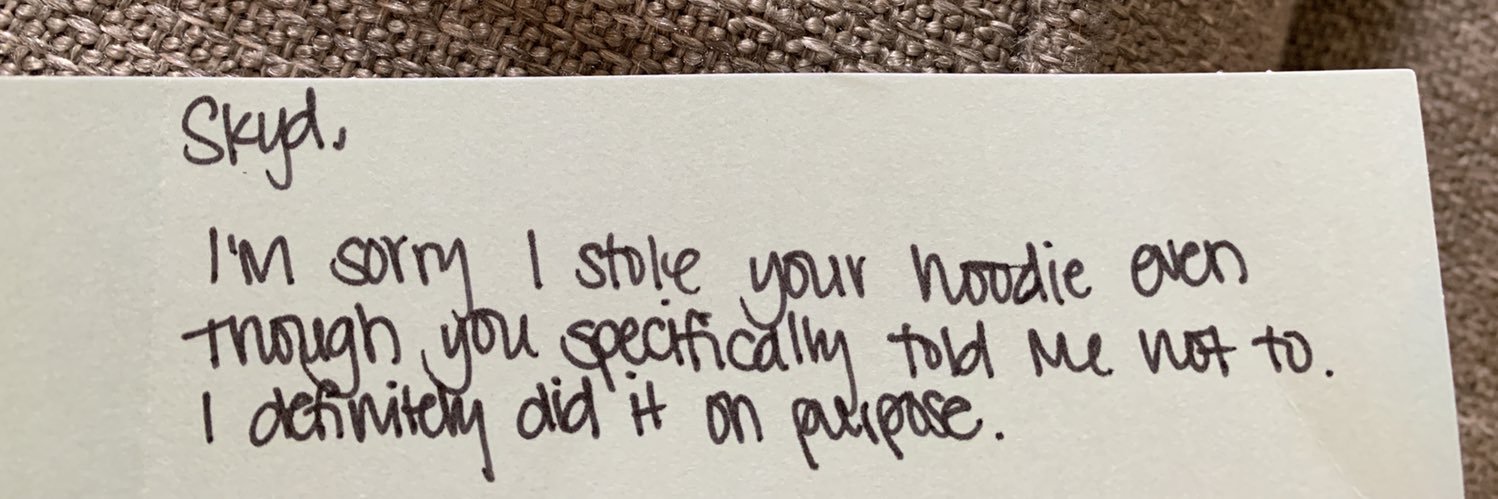 Skyd,
I'm sorry I stole your hoodie even
though you specifically told me not to.
I definitely did it on purpose.